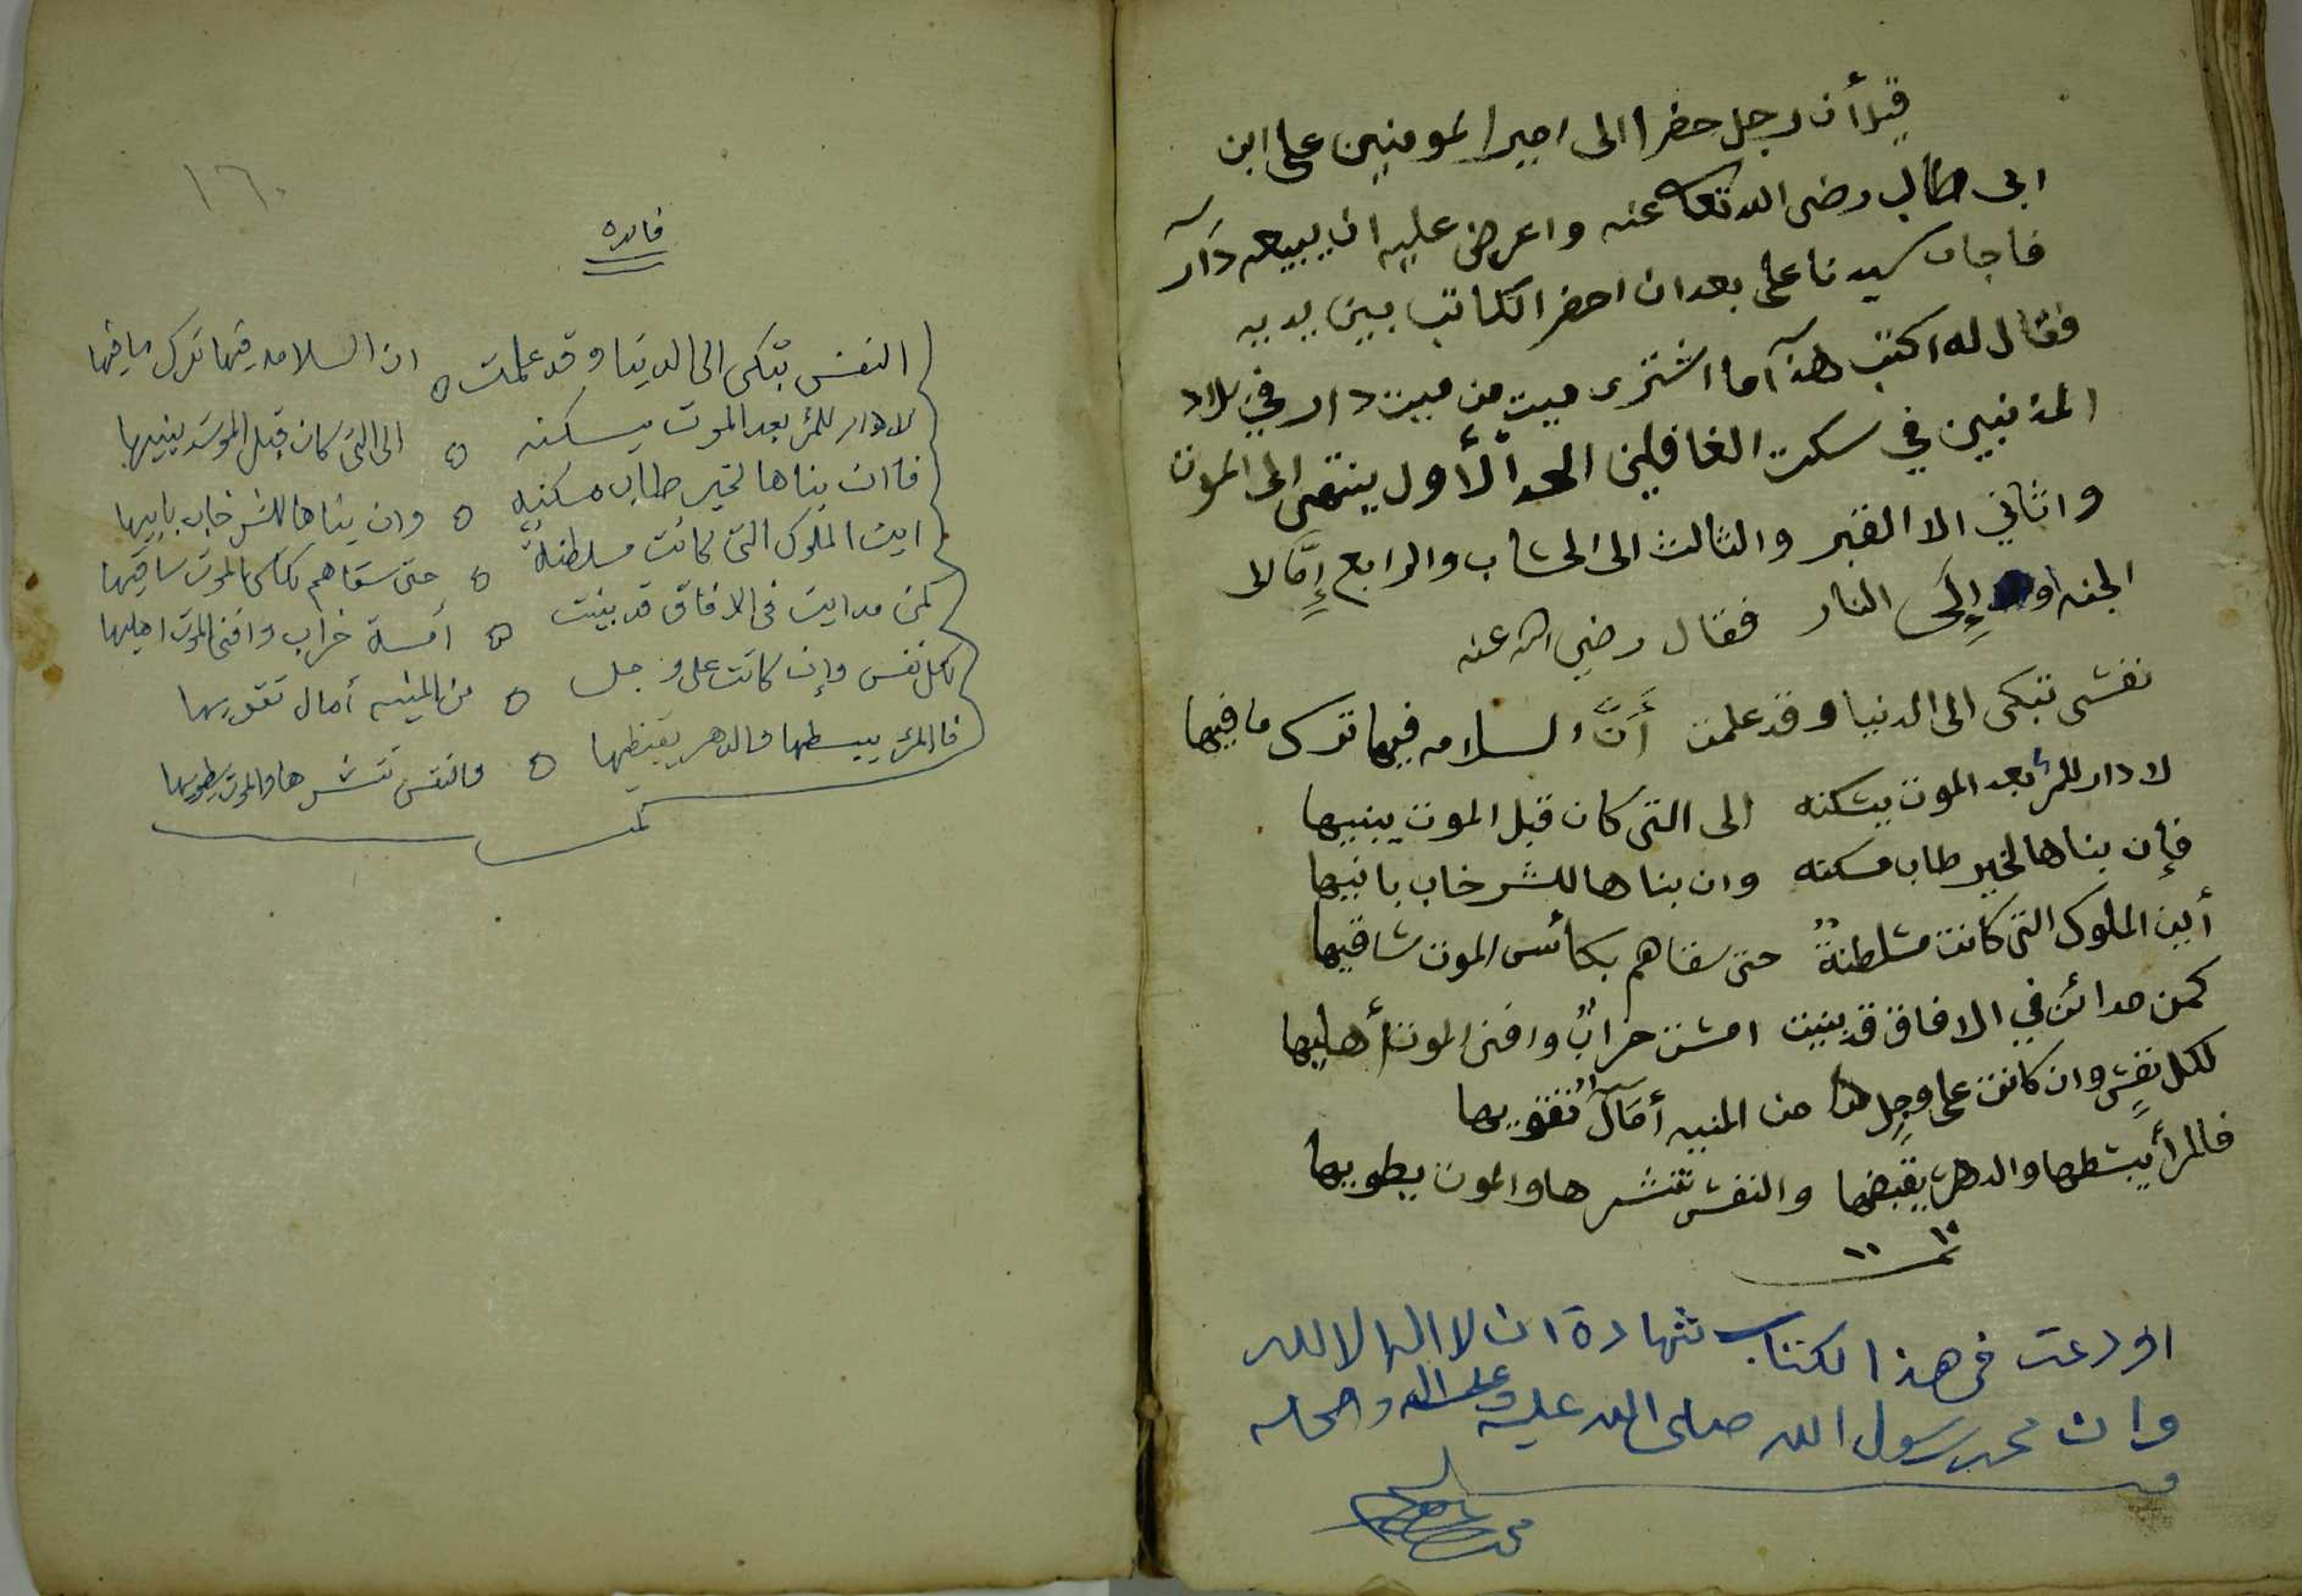 قيل أن رجل حضرا الى امير المومنين على ابن
ابى طالب رضى الله تعالى عنه واعرض عليه ان يبيعه دآر
فاجاب سيدنا على بعد ان احضر الكاتب بين يديه
فقال له اكتب هذآ ما اشترى ميت من ميت دار في بلاد
المذنبين في سكت الغافلين الحد الأول ينتهى الى الموت
واثاني الا القبر والثالث الى الحساب والرابع إمَّا الى
الجنه او إلَى النار فقال رضي الله عنه
نفسى تبكى الى الدنيا وقد علمت أنَّ السلامه فيها ترك ما فيها
لا دار للمرأ بعد الموت يسكنه الى التى كان قبل الموت يبنيها
فإن بناها لخير طاب مسكنه وان بناها للشر خاب بانيها
أين الملوك التى كانت مسلطنةً حتى سقاهم بكأس الموت ساقيها
كمن مدائن في الافاق قد بنيت امست خرابٌ وافنى الموت أهليها
لكل نفسٍ وان كانت على وجلٍ من المنيه أمآلٌ تقويها
فالمرأ يبسطها والدهر يقبضها والنفس تنشرها والموت يطويها
تمت
اودعت فى هذا الكتاب شهادة ان لا اله الا الله
وان محمد رسول الله صلى الله عليه وعلى اله واصحابه
١٦٠
فائده
النفس تبكى الى الدنيا وقد علمت ه ان السلامه فيها ترك ما فيها
لا دار للمرأ بعد الموت يسكنه ه الى التى كان قبل الموت يبنيها
فاان بناها لخير طاب مسكنه ه وان بناها للشر خاب بانيها
اين الملوك التى كانت مسلطنةً ه حتى سقاهم بكاس الموت ساقيها
كمن مداين فى الافاق قد بنيت ه أمسة خراب وافنى الموت اهليها
لكل نفس وإن كانت على وجل ه من المنيه أمال تقويها
فالمرأ يبسطها والدهر يقبظها ه والنفس تنشرها والموت يطويها
تمت